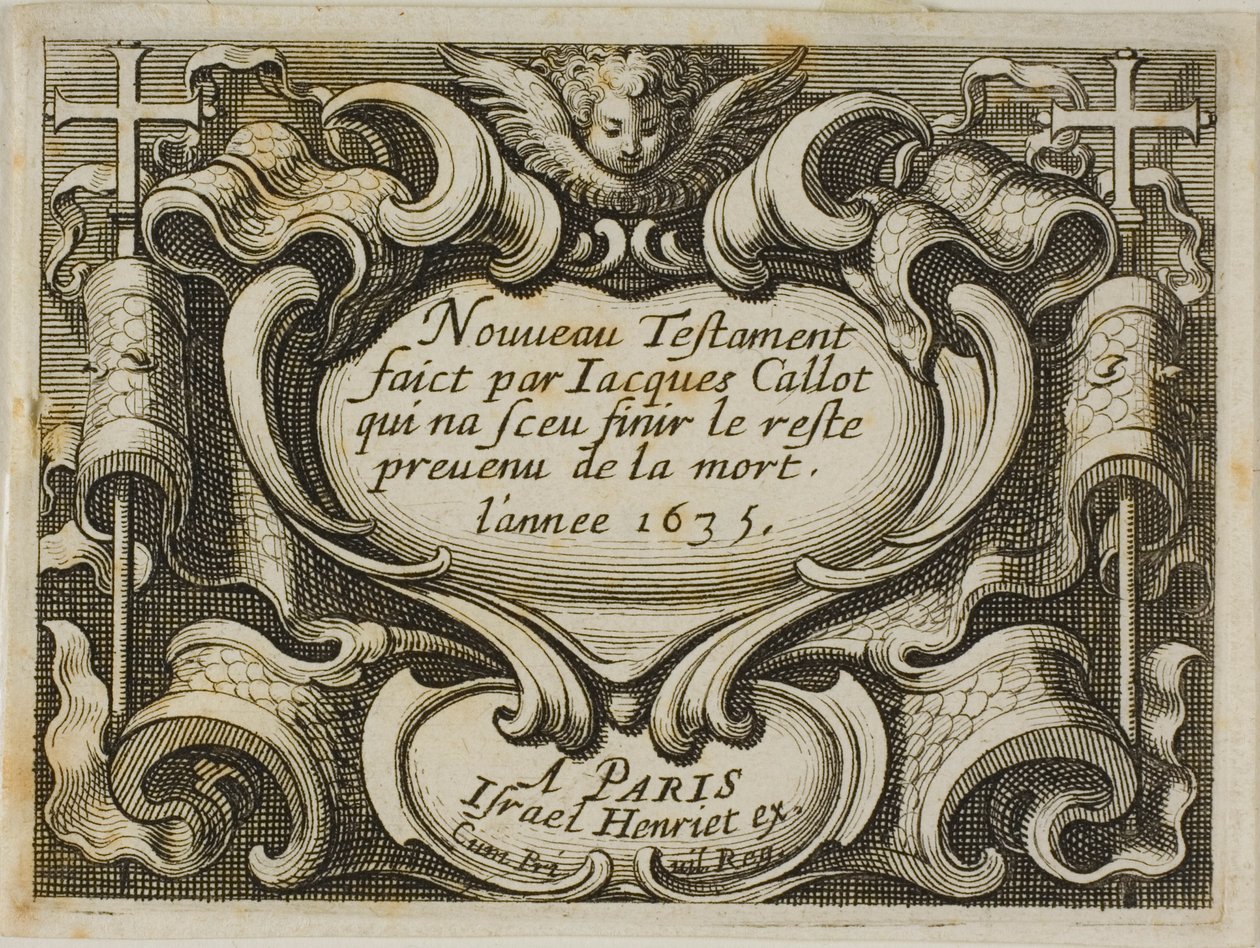 Nouueau Teſtament
faict par Iacques Callot
qui na ſceu finir le reſte
preuenu de la mort.
l'annee 1635.
A PARIS
Iſrael Henriet ex.
Cum Pri uil. Reg.